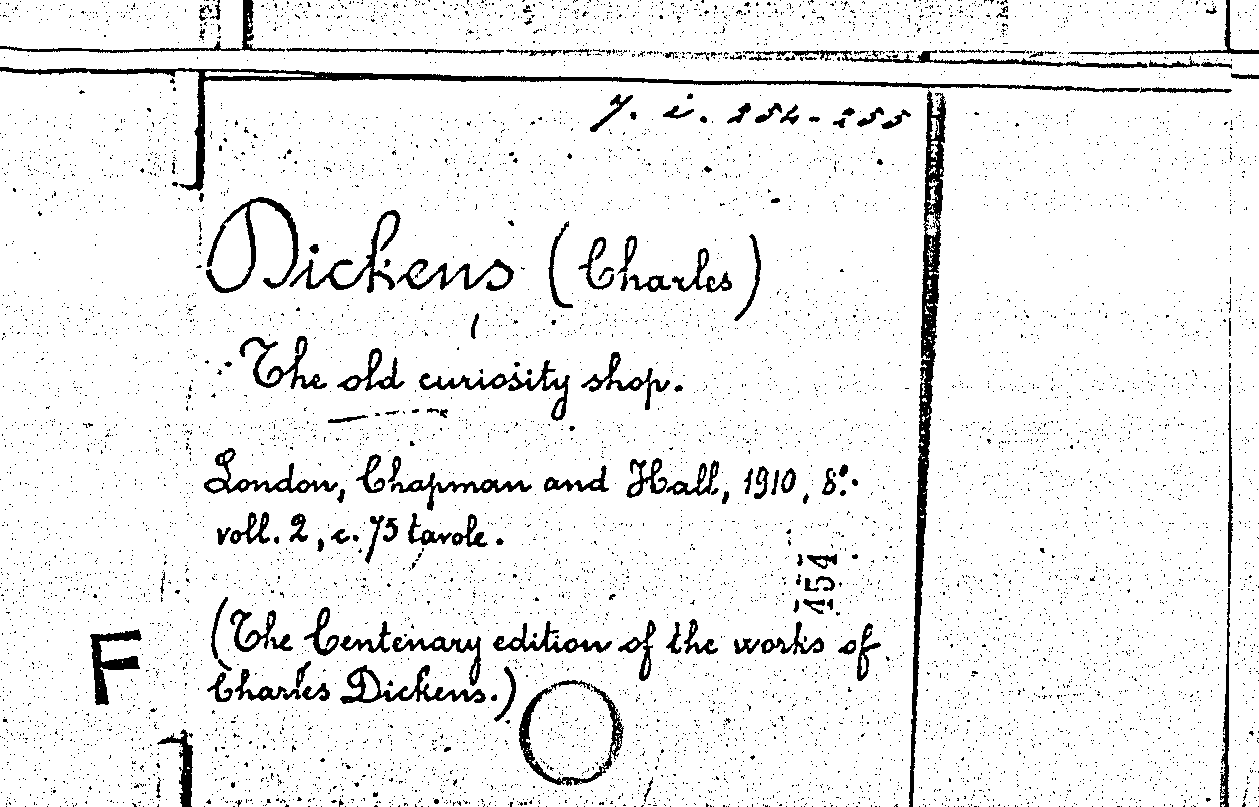 y. i. 254-255
Dickens (Charles)
The old curiosity shop.
London, Chapman and Hall, 1910, 8º.
voll. 2, c. 75 tavole.
454
(The Centenary edition of the works of
Charles Dickens.)
F